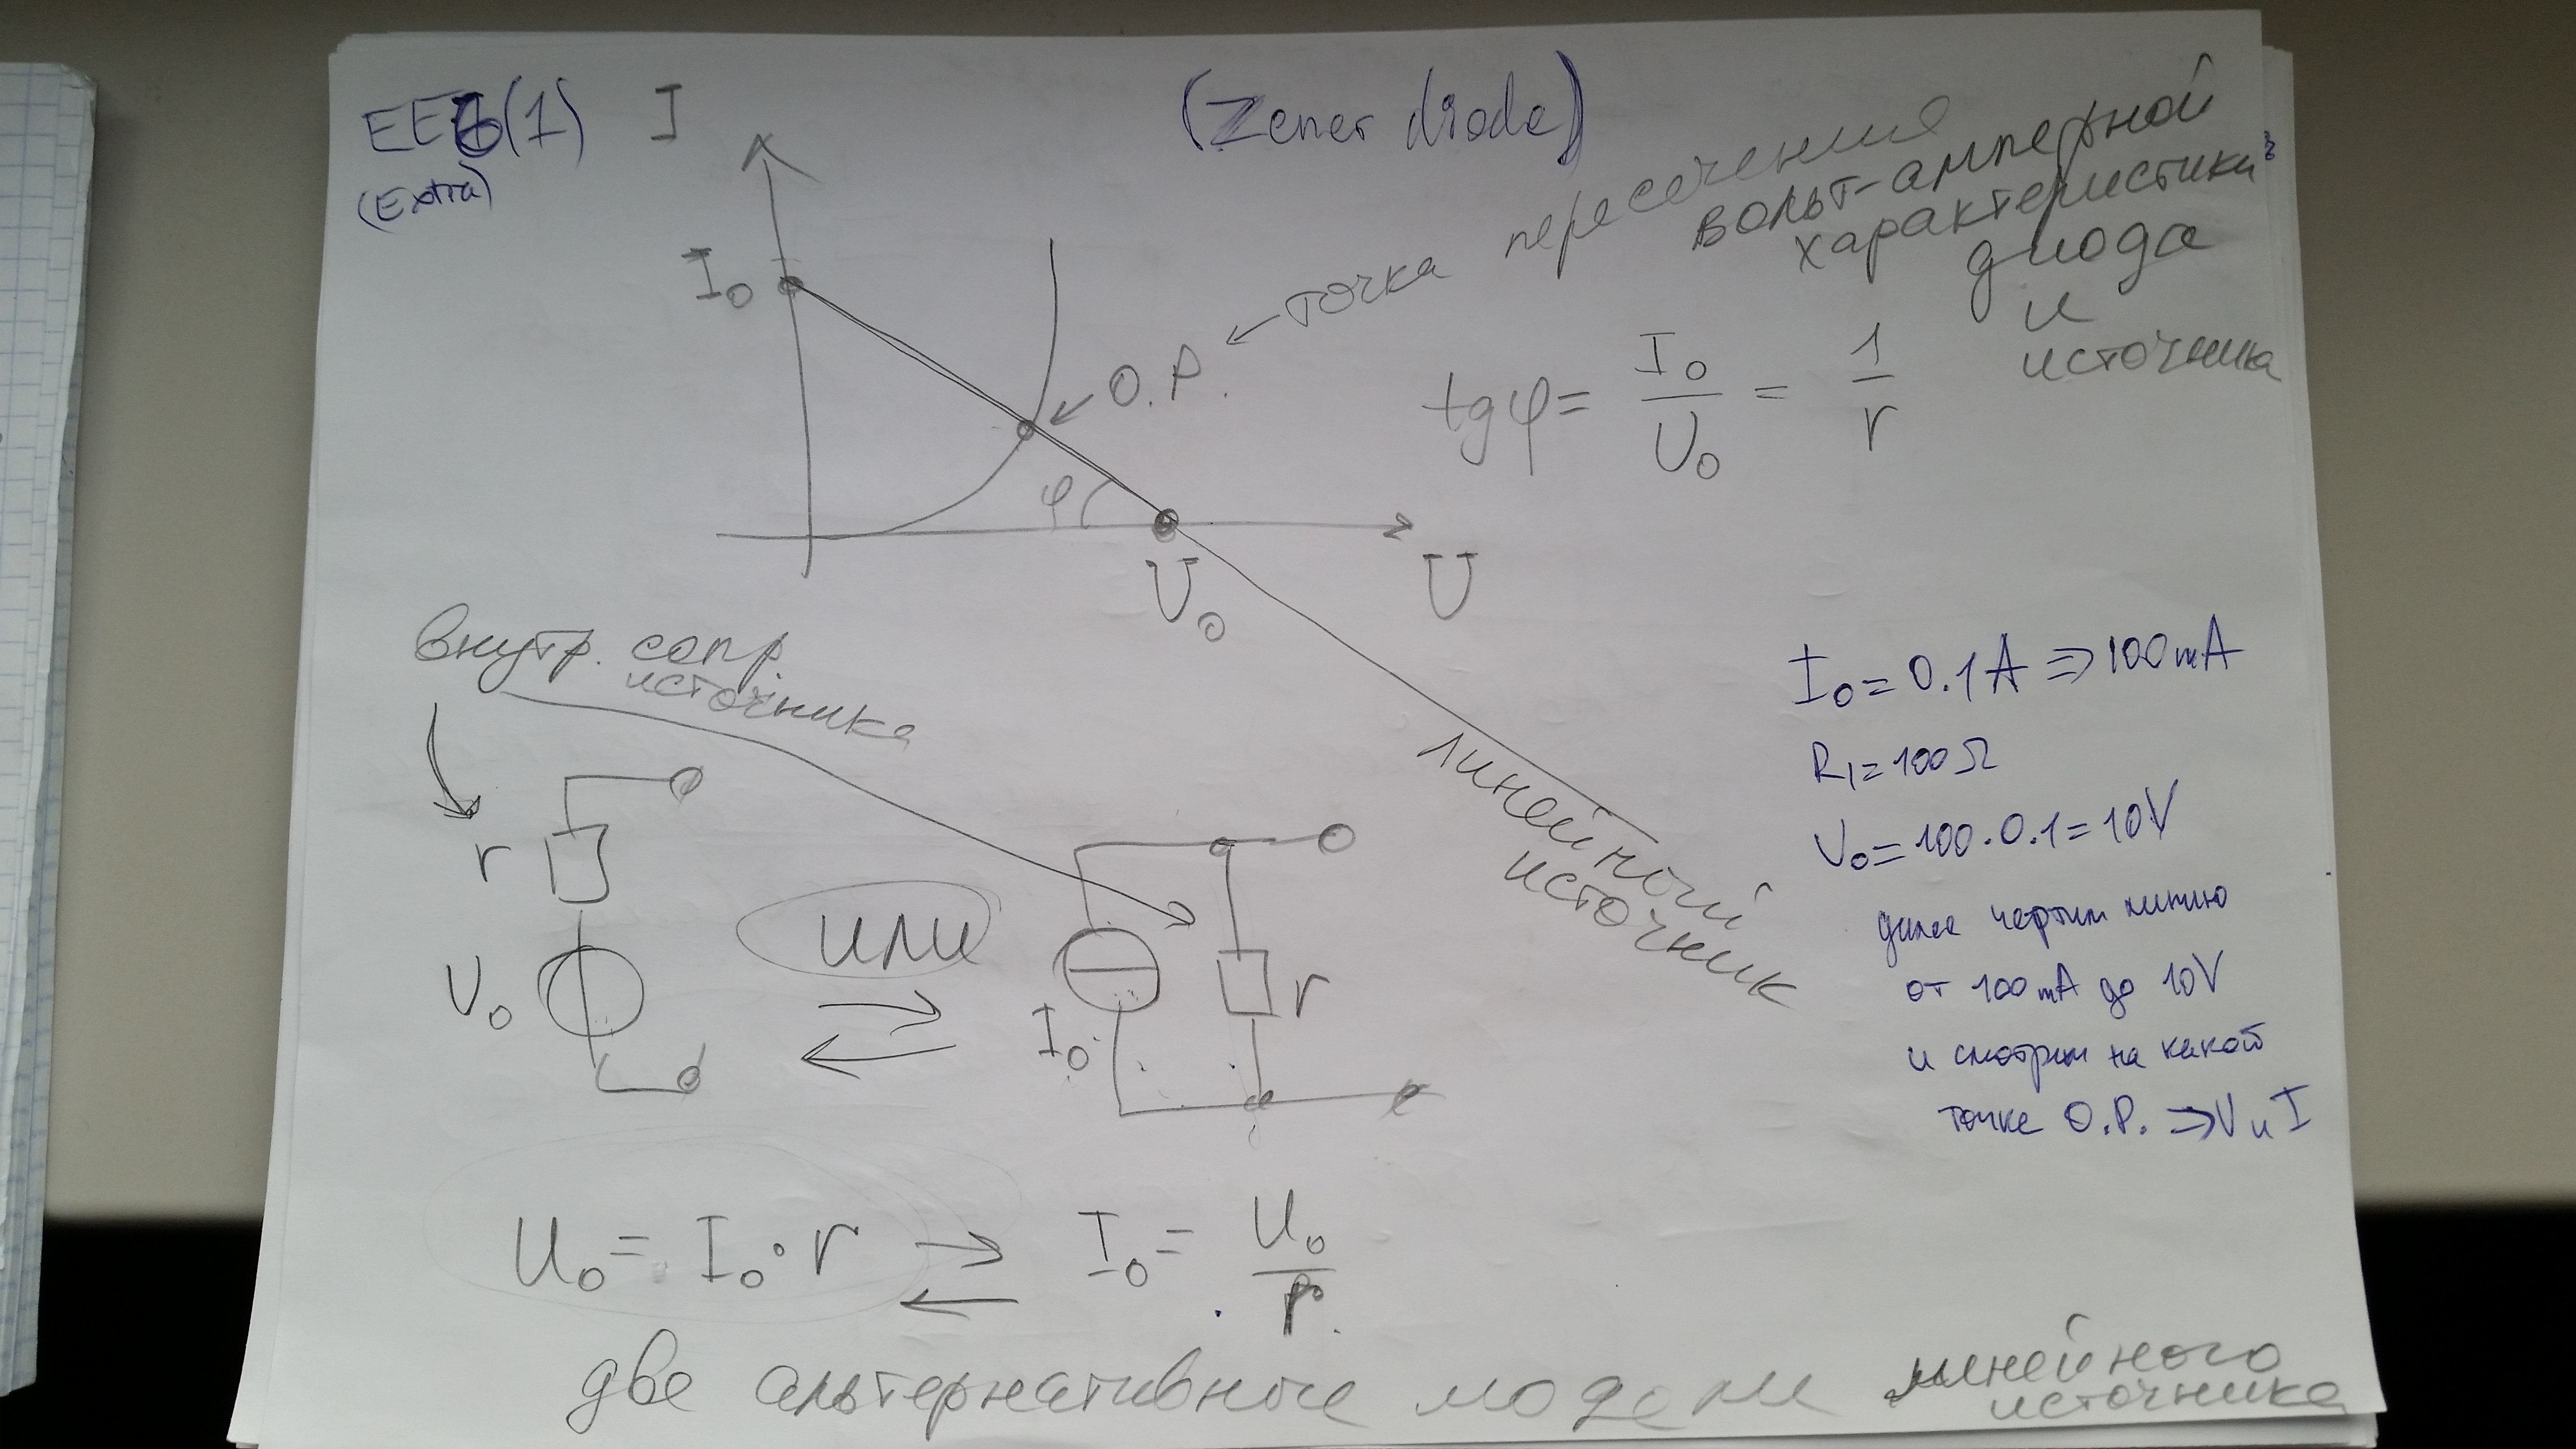 EE6(1)
(Extra)
(Zener diode)
I
I₀
O.P. ← точка пересечения
вольт-амперной
характеристики
диода
и
источника
tgφ = I₀/U₀ = 1/r
φ
U₀
U
линейный
источник
внутр. сопр.
источника
r
U₀
или
I₀
r
I₀ = 0.1A ⇒ 100mA
R₁ = 100Ω
U₀ = 100·0.1 = 10V
далее чертим линию
от 100mA до 10V
и смотрим на какой
точке O.P. ⇒ V и I
U₀ = I₀·r → I₀ = U₀/r
две альтернативные модели линейного
источника